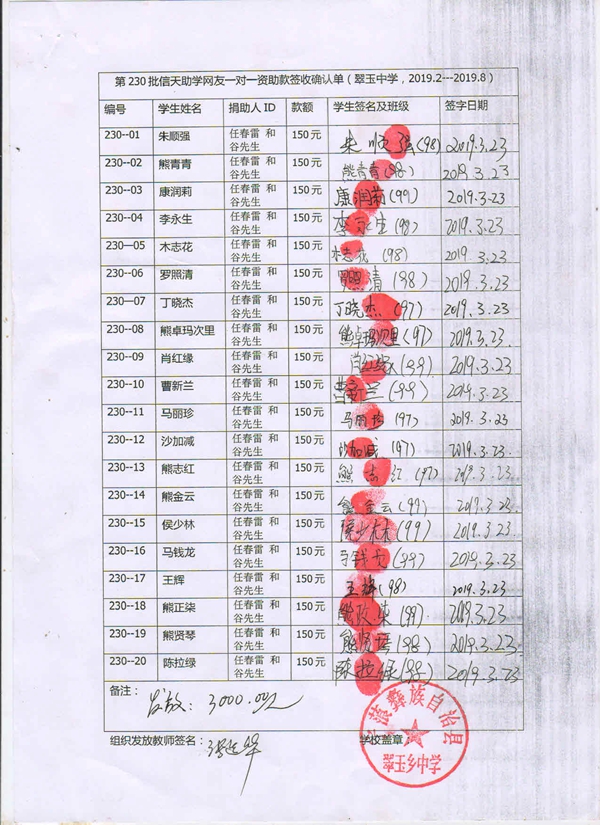 第230批信天助学网友一对一资助款签收确认单（翠玉中学，2019.2---2019.8）
编号 学生姓名 捐助人ID 款额 学生签名及班级 签字日期
230--01 朱顺强 任春雷 和谷先生 150元 朱顺强(98) 2019.3.23
230--02 熊青青 任春雷 和谷先生 150元 熊青青(98) 2019.3.23
230--03 康润莉 任春雷 和谷先生 150元 康润莉(99) 2019.3.23
230--04 李永生 任春雷 和谷先生 150元 李永生(99) 2019.3.23
230—05 木志花 任春雷 和谷先生 150元 木志花(98) 2019.3.23
230--06 罗照清 任春雷 和谷先生 150元 罗照清(98) 2019.3.23
230—07 丁晓杰 任春雷 和谷先生 150元 丁晓杰(97) 2019.3.23
230--08 熊卓玛次里 任春雷 和谷先生 150元 熊卓玛次里(97) 2019.3.23
230--09 肖红缘 任春雷 和谷先生 150元 肖红缘(99) 2019.3.23
230--10 曹新兰 任春雷 和谷先生 150元 曹新兰(99) 2019.3.23
230--11 马丽珍 任春雷 和谷先生 150元 马丽珍(97) 2019.3.23
230--12 沙加减 任春雷 和谷先生 150元 沙加减(97) 2019.3.23
230--13 熊志红 任春雷 和谷先生 150元 熊志红(97) 2019.3.23
230--14 熊金云 任春雷 和谷先生 150元 熊金云(99) 2019.3.23
230--15 侯少林 任春雷 和谷先生 150元 侯少林(99) 2019.3.23
230--16 马钱龙 任春雷 和谷先生 150元 (99) 2019.3.23
230--17 王辉 任春雷 和谷先生 150元 王辉(98) 2019.3.23
230--18 熊正柒 任春雷 和谷先生 150元 (99) 2019.3.23
230--19 熊贤琴 任春雷 和谷先生 150元 熊贤琴(98) 2019.3.23
230--20 陈拉绿 任春雷 和谷先生 150元 陈拉绿(98) 2019.3.23
备注：
发放：3000.00元
组织发放教师签名： 学校盖章：
蒗彝族自治县
翠玉乡中学